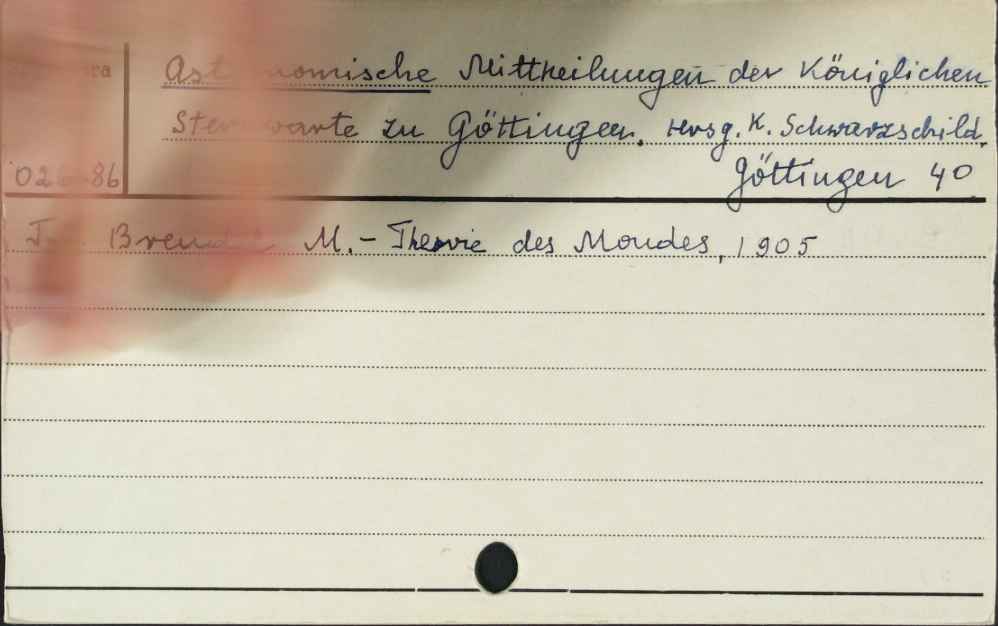 Astronomische Mittheilungen der Königlichen
Sternwarte zu Göttingen. Hrsg. K. Schwarzschild.
Göttingen 40
M. - Theorie des Mondes, 1905